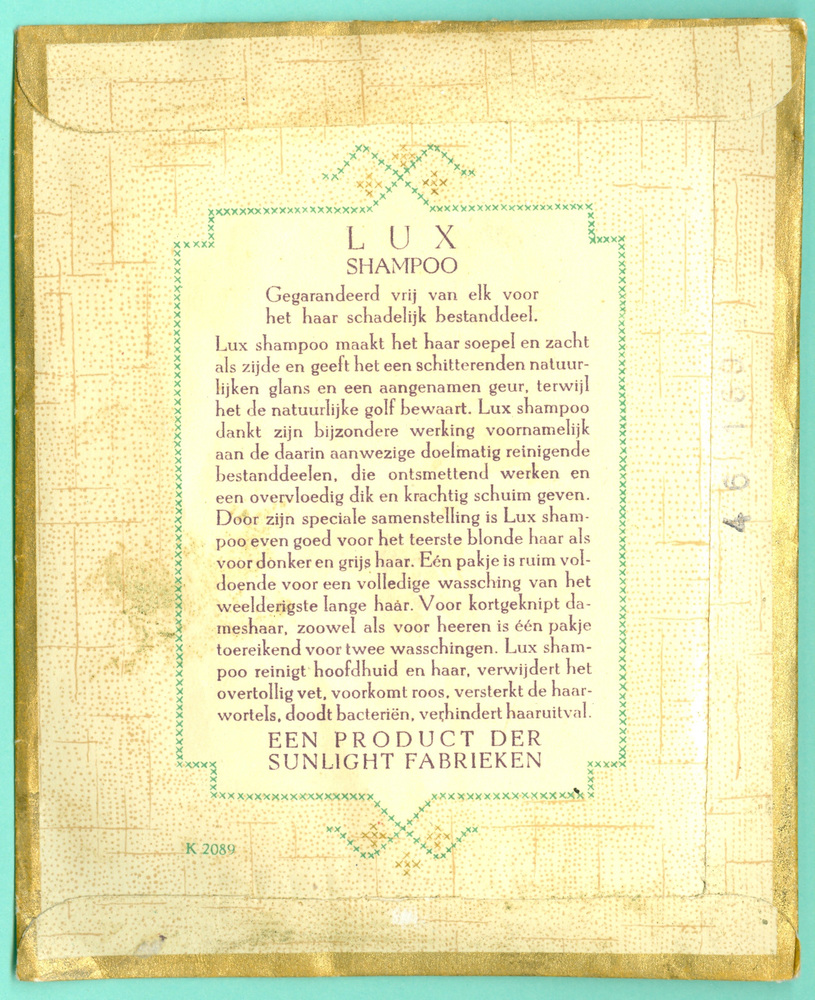 LUX
SHAMPOO
Gegarandeerd vrij van elk voor
het haar schadelijk bestanddeel.
Lux shampoo maakt het haar soepel en zacht
als zijde en geeft het een schitterenden natuur-
lijken glans en een aangenamen geur, terwijl
het de natuurlijke golf bewaart. Lux shampoo
dankt zijn bijzondere werking voornamelijk
aan de daarin aanwezige doelmatig reinigende
bestanddeelen, die ontsmettend werken en
een overvloedig dik en krachtig schuim geven.
Door zijn speciale samenstelling is Lux sham-
poo even goed voor het teerste blonde haar als
voor donker en grijs haar. Eén pakje is ruim vol-
doende voor een volledige wassching van het
weelderigste lange haar. Voor kortgeknipt da-
meshaar, zoowel als voor heeren is één pakje
toereikend voor twee wasschingen. Lux sham-
poo reinigt hoofdhuid en haar, verwijdert het
overtollig vet, voorkomt roos, versterkt de haar-
wortels, doodt bacteriën, verhindert haaruitval.
EEN PRODUCT DER
SUNLIGHT FABRIEKEN
K 2089